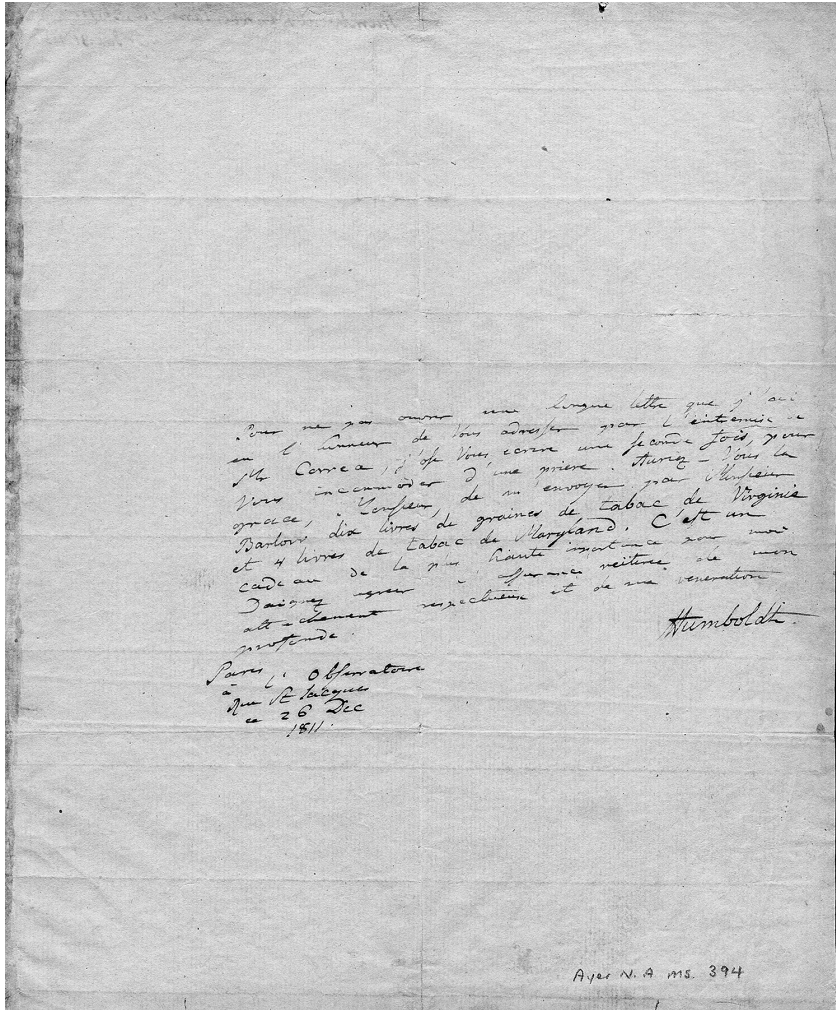 Pour ne pas ouvrir une longue lettre que j'ai
eu l'honneur de Vous adresser par l'entremise de
Mr Correa, j'ose Vous ecrire une seconde fois, pour
Vous incommoder d'une prière. Auriez-Vous la
grace, Monsieur, de m'envoyer par Monsieur
Barlow dix livres de graines de tabac de Virginie
et 4 livres de tabac de Maryland. C'est un
cadeau de la plus haute importance pour moi
Daignez agreer l'assurance reiterée de mon
attachement respectueux et de ma veneration
profonde.
Humboldt.
Paris
à l'Observatoire
Rue St Jacques
ce 26 Dec
1811.
Ayer N.A MS. 394